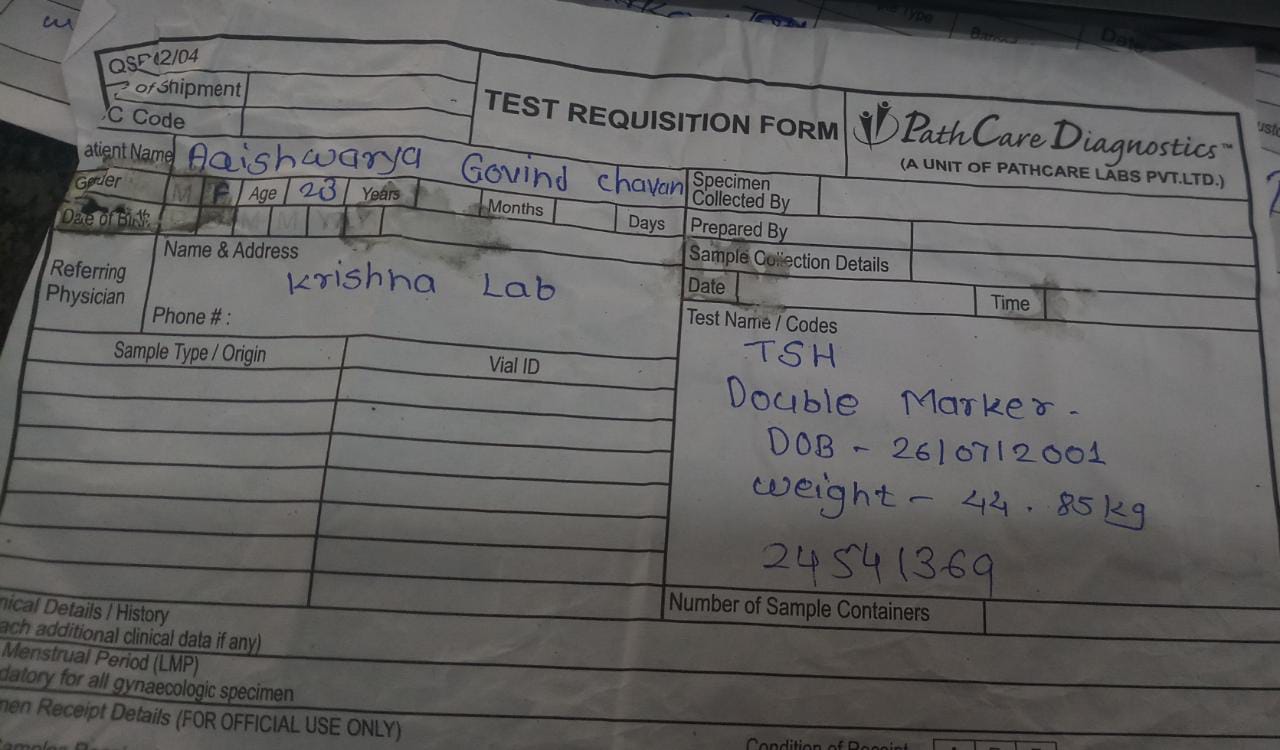 QSF 12/04
TEST REQUISITION FORM
PathCare Diagnostics™
(A UNIT OF PATHCARE LABS PVT.LTD.)
of Shipment
C Code
atient Name Aaishwarya Govind Chavan
Specimen Collected By
Gender M F Age 23 Years Months Days
Prepared By
Date of Birth M M Y Y
Sample Collection Details
Referring Physician
Name & Address
Krishna Lab
Phone # :
Date
Time
Test Name / Codes
TSH
Double Marker -
DOB - 26/07/2001
weight - 44.85kg
24541369
Sample Type / Origin
Vial ID
Number of Sample Containers
nical Details / History
ach additional clinical data if any)
Menstrual Period (LMP)
datory for all gynaecologic specimen
men Receipt Details (FOR OFFICIAL USE ONLY)
Condition of Receipt